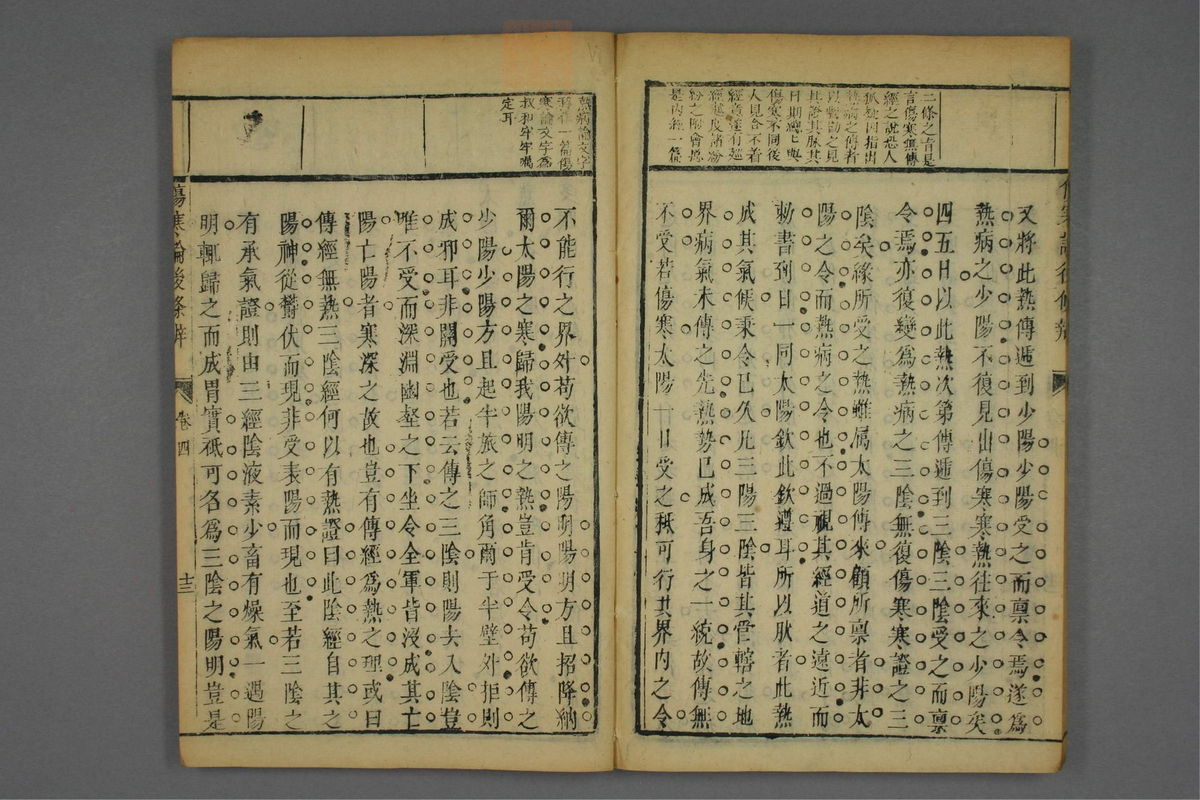 二條之旨是
言傷寒無傳
經之說恐人
狐疑因指出
熱病之傳者
以戡勘之見
其證其脉其
日期總七與
傷寒不同後
人見台不着
經意遂有越
經過度諸紛
紛之附會愚
是內經一篇
又將此熱傳遞到少陽少陽受之而稟令焉遂為
熱病之少陽不復見出傷寒寒熱往來之少陽矣
四五日以此熱次第傳遞到三陰三陰受之而稟
令焉亦復變為熱病之三陰無復傷寒寒證之三
陰矣緣所受之熱雖屬太陽傳來顧所稟者非太
陽之令而熱病之令也不過視其經道之遠近而
勅書到日一同太陽欽此欽遵耳所以肰者此熱
成其氣候秉令已久凢三陽三陰皆其管轄之地
界病氣未傳之先熱勢已成吾身之一統故傳無
不受若傷寒太陽一日受之秪可行其界內之令
熱病論文字
寒論文字爲
叔和牢牢嘴
定耳
不能行之界外苟欲傳之陽明陽明方且招降納
爾太陽之寒歸我陽明之熱豈肯受令苟欲傳之
少陽少陽方且起半旅之師角爾于半壁外拒則
成邪耳非關受也若云傳之三陰則陽去入陰豈
唯不受而深淵幽壑之下坐令全軍皆沒成其亡
陽亡陽者寒深之故也豈有傳經為熱之理或曰
傳經無熱三陰經何以有熱證曰此陰經自其之
陽神從欝伏而現非受表陽而現也至若三陰之
有承氣證則由三經陰液素少畜有燥氣一遇陽
明輒歸之而成胃實秪可名為三陰之陽明豈是
傷寒論後條辨
卷四
十三